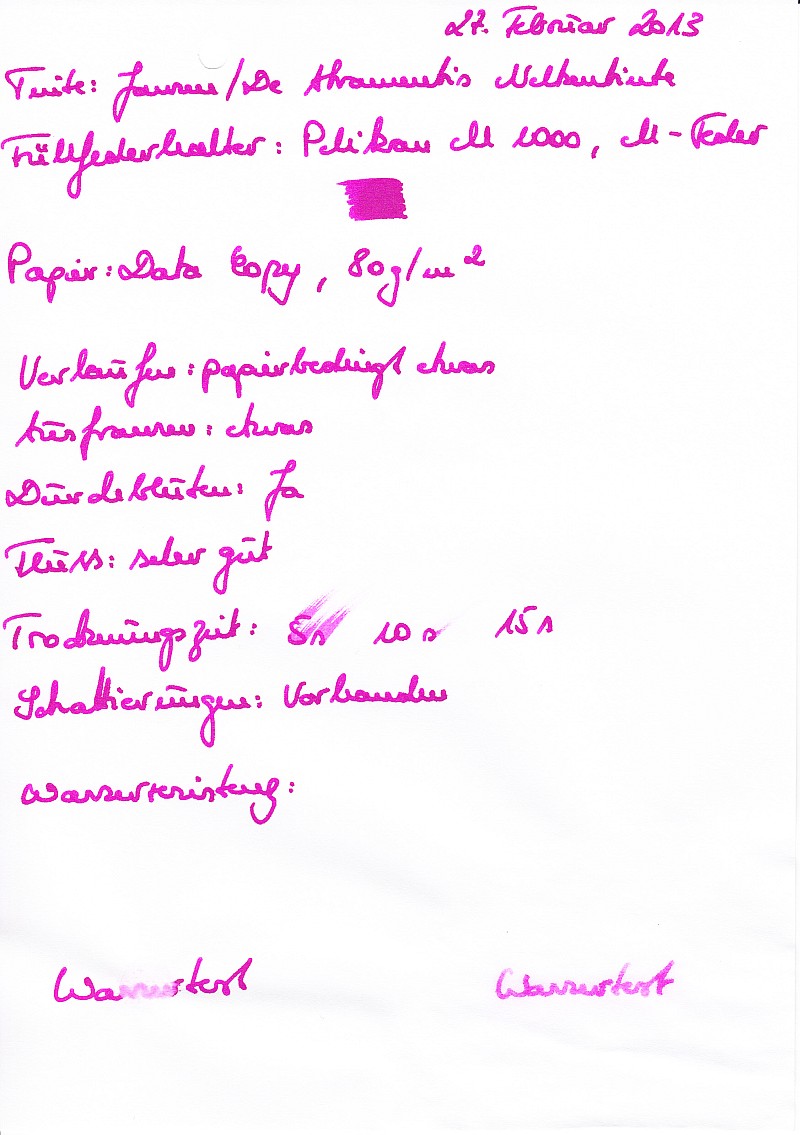 27. Februar 2013
Tinte: Jansen/De Atramentis Nelkentinte
Füllfederhalter: Pelikan M 1000, M-Feder
Papier: Data Copy, 80g/m²
Verlaufen: papierbedingt etwas
Ausfransen: etwas
Durchbluten: Ja
Fluss: sehr gut
Trocknungszeit: 5s 10s 15s
Schattierungen: Vorhanden
Wasserresistenz:
Wassertest Wassertest